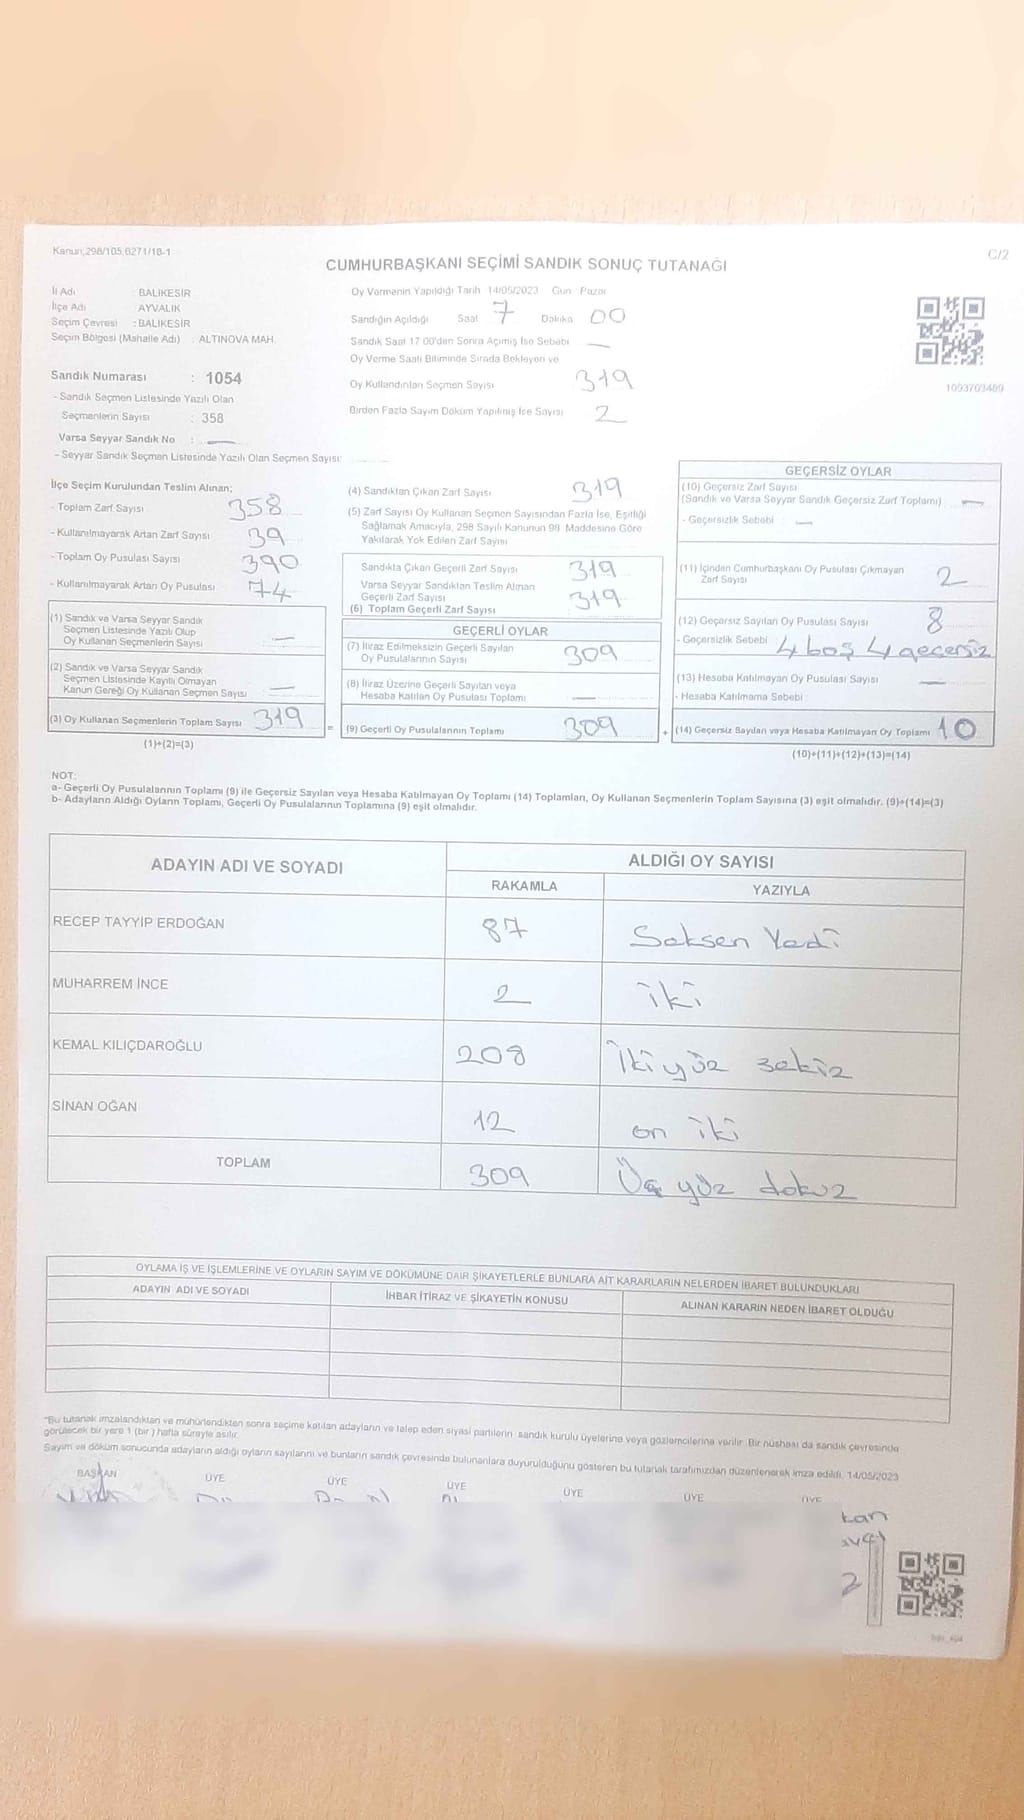 Kanun;298/105,6271/18-1
C/2
CUMHURBAŞKANI SEÇİMİ SANDIK SONUÇ TUTANAĞI
İl Adı : BALIKESİR
İlçe Adı : AYVALIK
Seçim Çevresi : BALIKESİR
Seçim Bölgesi (Mahalle Adı) : ALTINOVA MAH.
Sandık Numarası : 1054
- Sandık Seçmen Listesinde Yazılı Olan
Seçmenlerin Sayısı : 358
Varsa Seyyar Sandık No : —
- Seyyar Sandık Seçmen Listesinde Yazılı Olan Seçmen Sayısı:
Oy Vermenin Yapıldığı Tarih 14/05/2023 Gün Pazar
Sandığın Açıldığı Saat 7 Dakika 00
Sandık Saat 17:00'den Sonra Açımış İse Sebebi —
Oy Verme Saati Bitiminde Sırada Bekleyen ve
Oy Kullandırılan Seçmen Sayısı 319
Birden Fazla Sayım Döküm Yapılmış İse Sayısı 2
1093703489
İlçe Seçim Kurulundan Teslim Alınan;
- Toplam Zarf Sayısı 358
- Kullanılmayarak Artan Zarf Sayısı 39
- Toplam Oy Pusulası Sayısı 390
- Kullanılmayarak Artan Oy Pusulası 74
(1) Sandık ve Varsa Seyyar Sandık
Seçmen Listesinde Yazılı Olup
Oy Kullanan Seçmenlerin Sayısı —
(2) Sandık ve Varsa Seyyar Sandık
Seçmen Listesinde Kayıtlı Olmayan
Kanun Gereği Oy Kullanan Seçmen Sayısı —
(3) Oy Kullanan Seçmenlerin Toplam Sayısı 319
(1)+(2)=(3)
(4) Sandıktan Çıkan Zarf Sayısı 319
(5) Zarf Sayısı Oy Kullanan Seçmen Sayısından Fazla İse, Eşitliği
Sağlamak Amacıyla, 298 Sayılı Kanunun 98. Maddesine Göre
Yakılarak Yok Edilen Zarf Sayısı
Sandıkta Çıkan Geçerli Zarf Sayısı 319
Varsa Seyyar Sandıktan Teslim Alınan
Geçerli Zarf Sayısı 319
(6) Toplam Geçerli Zarf Sayısı
GEÇERLİ OYLAR
(7) İtiraz Edilmeksizin Geçerli Sayılan
Oy Pusulalarının Sayısı 309
(8) İtiraz Üzerine Geçerli Sayılan veya
Hesaba Katılan Oy Pusulası Toplamı —
= (9) Geçerli Oy Pusulalarının Toplamı 309
GEÇERSİZ OYLAR
(10) Geçersiz Zarf Sayısı
(Sandık ve Varsa Seyyar Sandık Geçersiz Zarf Toplamı) —
- Geçersizlik Sebebi : —
(11) İçinden Cumhurbaşkanı Oy Pusulası Çıkmayan
Zarf Sayısı 2
(12) Geçersiz Sayılan Oy Pusulası Sayısı 8
- Geçersizlik Sebebi 4 boş 4 geçersiz
(13) Hesaba Katılmayan Oy Pusulası Sayısı —
- Hesaba Katılmama Sebebi
+ (14) Geçersiz Sayılan veya Hesaba Katılmayan Oy Toplamı 10
(10)+(11)+(12)+(13)=(14)
NOT:
a- Geçerli Oy Pusulalarının Toplamı (9) ile Geçersiz Sayılan veya Hesaba Katılmayan Oy Toplamı (14) Toplamları, Oy Kullanan Seçmenlerin Toplam Sayısına (3) eşit olmalıdır. (9)+(14)=(3)
b- Adayların Aldığı Oyların Toplamı, Geçerli Oy Pusulalarının Toplamına (9) eşit olmalıdır.
ADAYIN ADI VE SOYADI ALDIĞI OY SAYISI
RAKAMLA YAZIYLA
RECEP TAYYİP ERDOĞAN 87 Seksen Yedi
MUHARREM İNCE 2 iki
KEMAL KILIÇDAROĞLU 208 İki yüz sekiz
SİNAN OĞAN 12 on iki
TOPLAM 309 Üç yüz dokuz
OYLAMA İŞ VE İŞLEMLERİNE VE OYLARIN SAYIM VE DÖKÜMÜNE DAİR ŞİKAYETLERLE BUNLARA AİT KARARLARIN NELERDEN İBARET BULUNDUKLARI
ADAYIN ADI VE SOYADI İHBAR İTİRAZ VE ŞİKAYETİN KONUSU ALINAN KARARIN NEDEN İBARET OLDUĞU
"Bu tutanak imzalandıktan ve mühürlendikten sonra seçime katılan adayların ve talep eden siyasi partilerin sandık kurulu üyelerine veya gözlemcilerine verilir. Bir nüshası da sandık çevresinde
görülecek bir yere 1 (bir) hafta süreyle asılır.
Sayım ve döküm sonucunda adayların aldığı oyların sayılarını ve bunların sandık çevresinde bulunanlara duyurulduğunu gösteren bu tutanak tarafımızdan düzenlenerek imza edildi. 14/05/2023
BAŞKAN ÜYE ÜYE ÜYE ÜYE ÜYE ÜYE